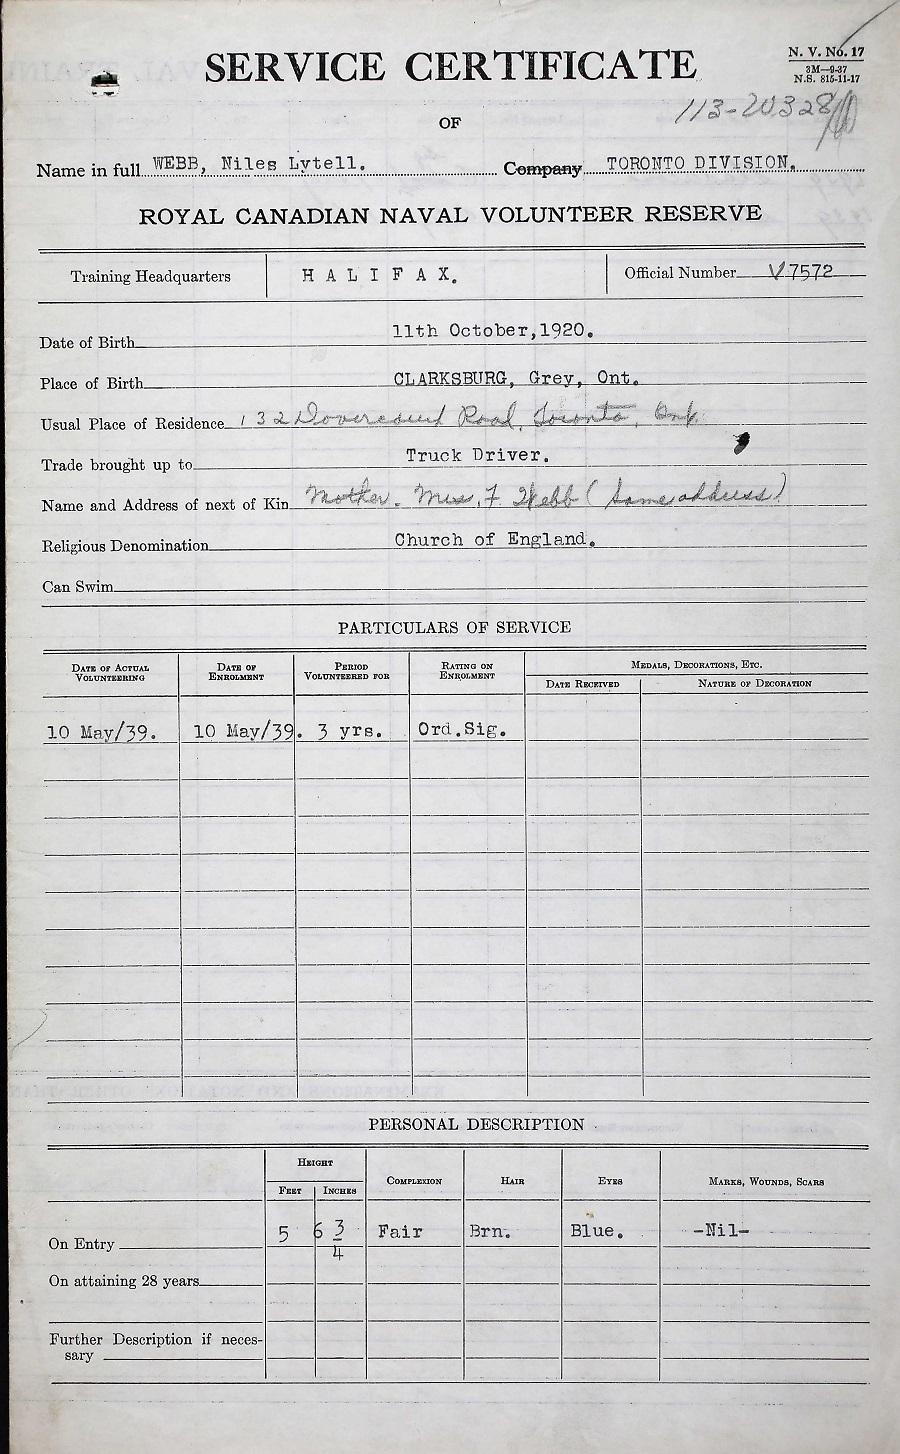 SERVICE CERTIFICATE
N. V. No. 17
3M—9-37
N.S. 815-11-17
113-20328
OF
Name in full WEBB, Niles Lytell. Company TORONTO DIVISION.
ROYAL CANADIAN NAVAL VOLUNTEER RESERVE
Training Headquarters HALIFAX. Official Number V7572
Date of Birth 11th October,1920.
Place of Birth CLARKSBURG, Grey, Ont.
Usual Place of Residence 132 Dovercourt Road, Toronto, Ont.
Trade brought up to Truck Driver.
Name and Address of next of Kin Mother. Mrs. F Webb (Same address)
Religious Denomination Church of England.
Can Swim
PARTICULARS OF SERVICE
Date of Actual Volunteering Date of Enrolment Period Volunteered for Rating on Enrolment Medals, Decorations, Etc.
Date Received Nature of Decoration
10 May/39. 10 May/39. 3 yrs. Ord.Sig.
PERSONAL DESCRIPTION
Height Complexion Hair Eyes Marks, Wounds, Scars
Feet Inches
On Entry 5 6 3/4 Fair Brn. Blue. -Nil-
On attaining 28 years
Further Description if neces-
sary